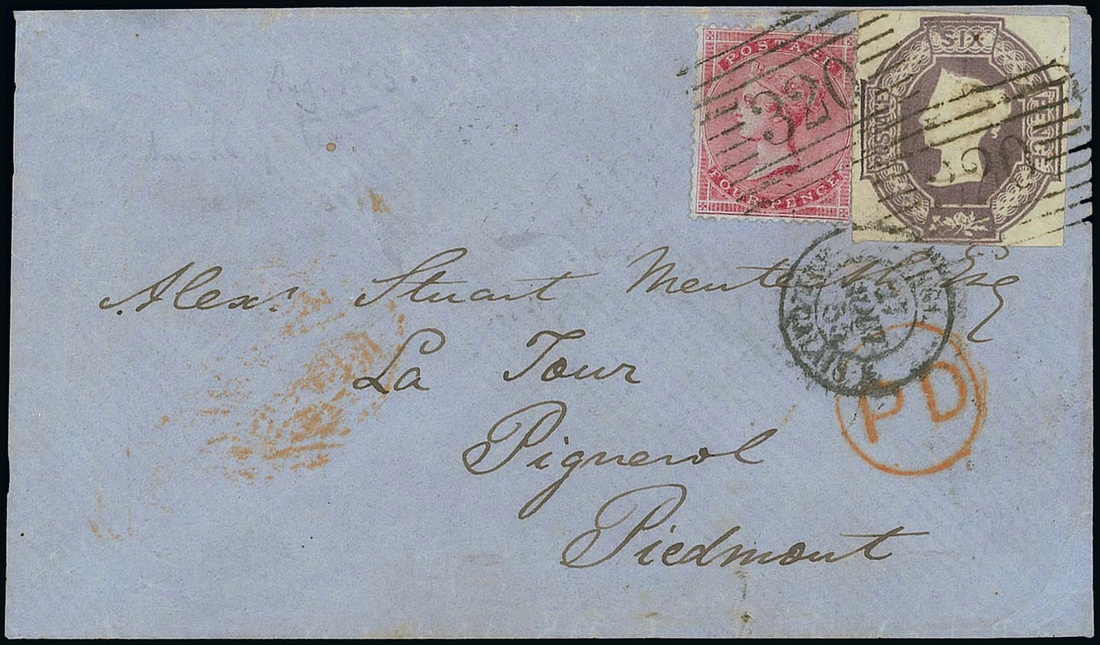 POSTAGE
FOUR PENCE
320
SIX
POSTAGE
PENCE
320
Alexr. Stuart Menteath Esq
La Tour
Pignerol
Piedmont
PD